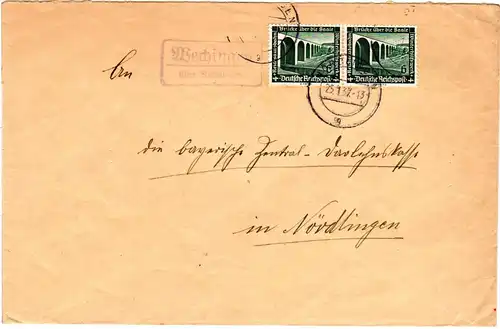 Brücke über die Saale Brücke über die Saale
6 6
Deutsche Reichspost Deutsche Reichspost
Weching
über
25.1.37.-13
An
die bayerische Zentral-Darlehnskasse
in Nördlingen